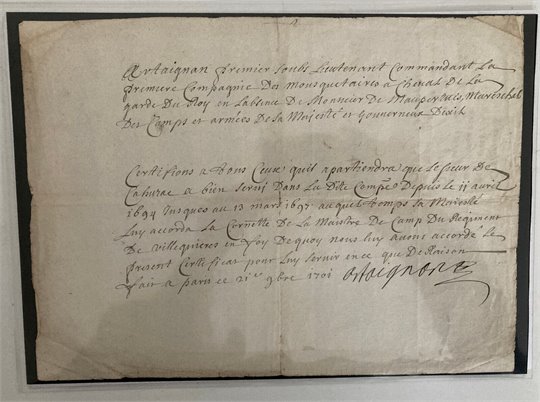 Artaignan premier soubs Lieutenant Commandant La
premiere Compagnie Des mousquetaires a Cheval De La
garde Du Roy en Labsence de Monsieur De Maupertuis, Mareschal
Des Camps et armées De sa Majesté et Gouverneur
Certifions a tous Ceux quil apartiendra que Le sieur De
a bien servi Dans La Dite Compe Depuis Le 11 avril
1694 Jusques au 13 mars 1697 auquel temps sa Majesté
Luy accorda La Cornette De La Maistre De Camp Du Regiment
De villequieres en foy De quoy nous luy avons accordé Le
present Certificat pour Luy servir en ce que De Raison
fait a paris ce 21e 9bre 1701 Artaignan